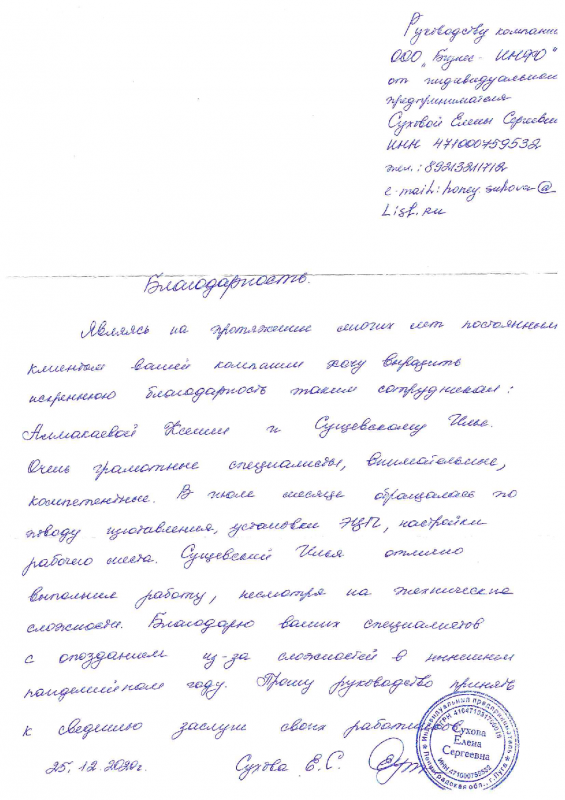 Руководству компании
ООО „Бизнес-ИНФО"
от индивидуального
предпринимателя
Суховой Елены Сергеевны
ИНН 471000759532
тел.: 89213211712
e-mail: honey.suhova@
List.ru
Благодарность.
Являясь на протяжении многих лет постоянным
клиентом вашей компании хочу выразить
искреннюю благодарность таким сотрудникам:
Алмакаевой Ксении и Сущевскому Илье.
Очень грамотные специалисты, внимательные,
компетентные. В июле месяце обращалась по
поводу изготовления, установки ЭЦП, настройки
рабочего места. Сущевский Илья отлично
выполнил работу, несмотря на технические
сложности. Благодарю ваших специалистов
с опозданием из-за сложностей в нынешнем
пандемийном году. Прошу руководство принять
к сведению заслуги своих работников.
25.12.2020г. Сухова Е.С.
Индивидуальный предприниматель
Сухова
Елена
Сергеевна
ИНН 471000759532